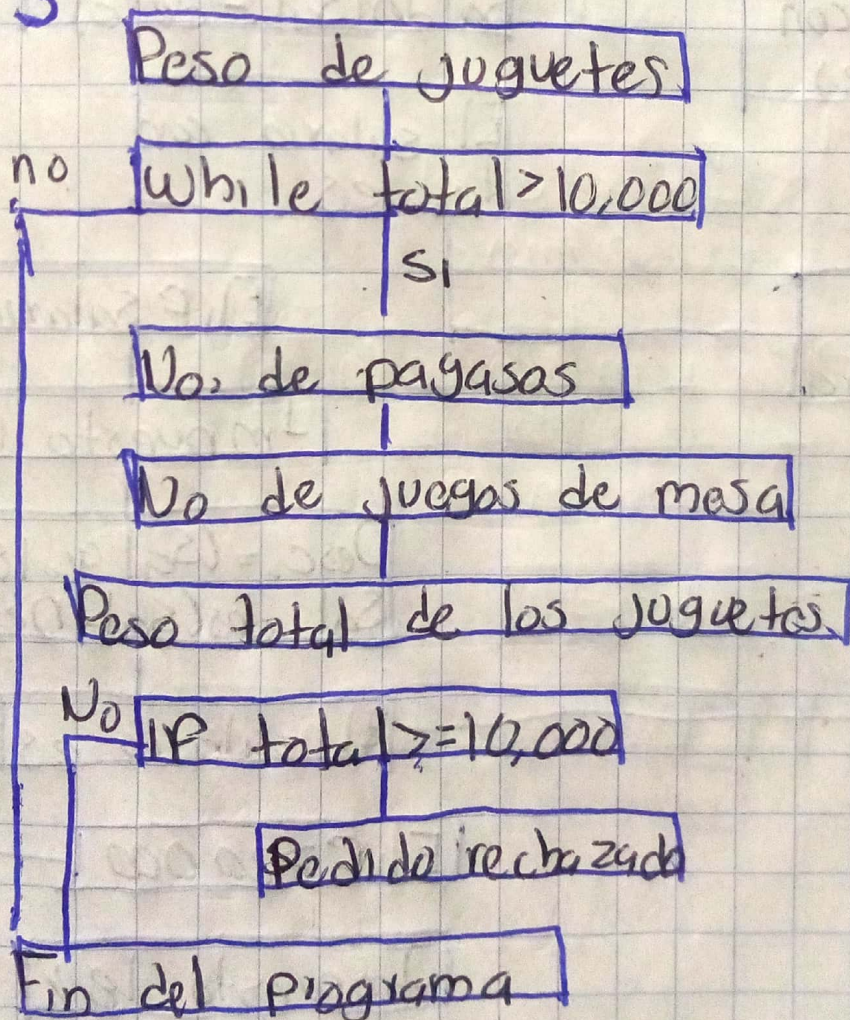 Peso de juguetes.
no
While total > 10,000
Si
No. de pagasos
No de juegos de mesa
Peso total de los juguetes.
No
IF total >= 10,000
Pedido rechazado
Fin del programa